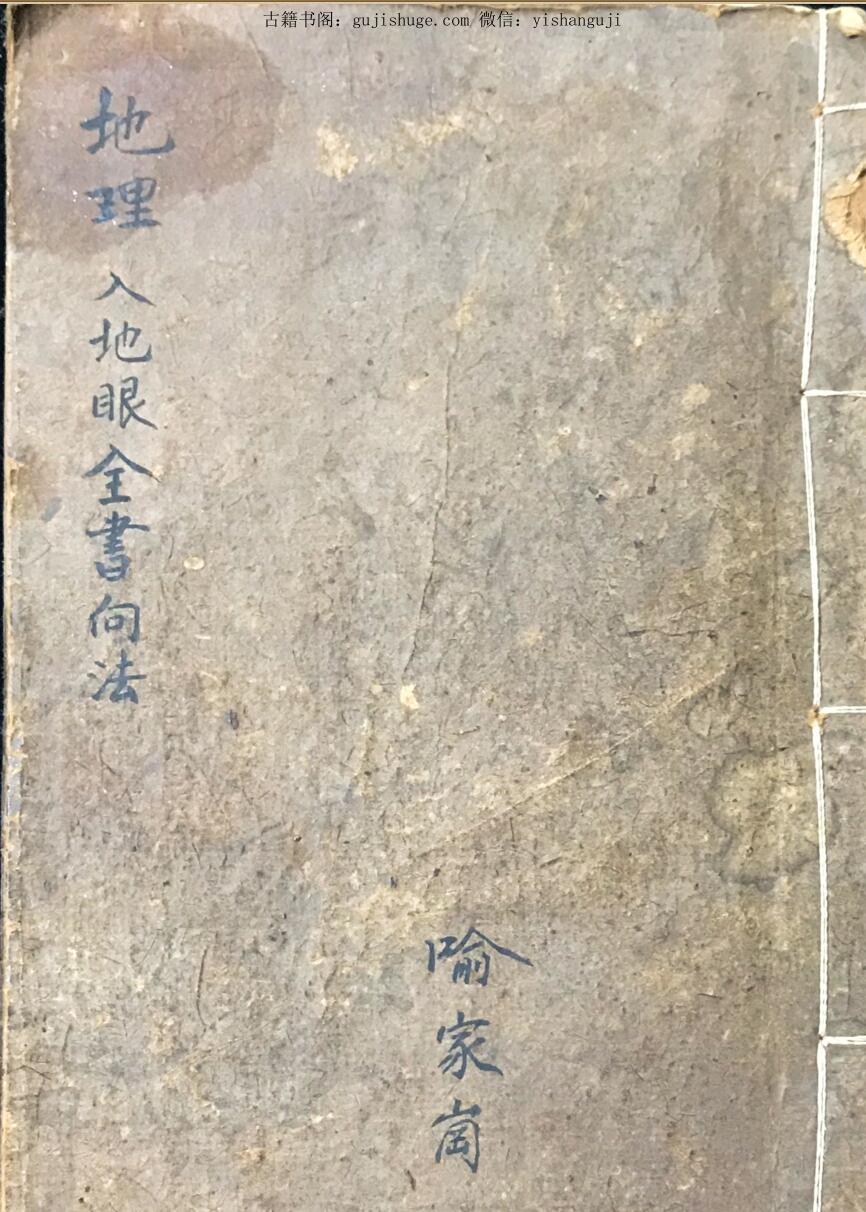 古籍书阁: gujishuge.com 微信: yishanguji
地理 入地眼全書向法
喻家崗